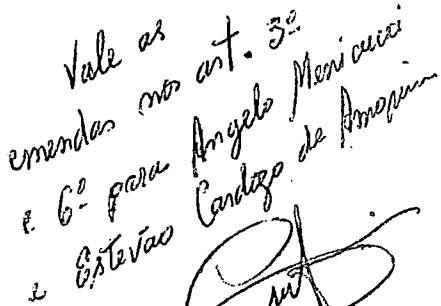 Vale as
emendas nos art. 3º
e 6º para Angelo Menicucci
e Estevão Cardozo de Amorim